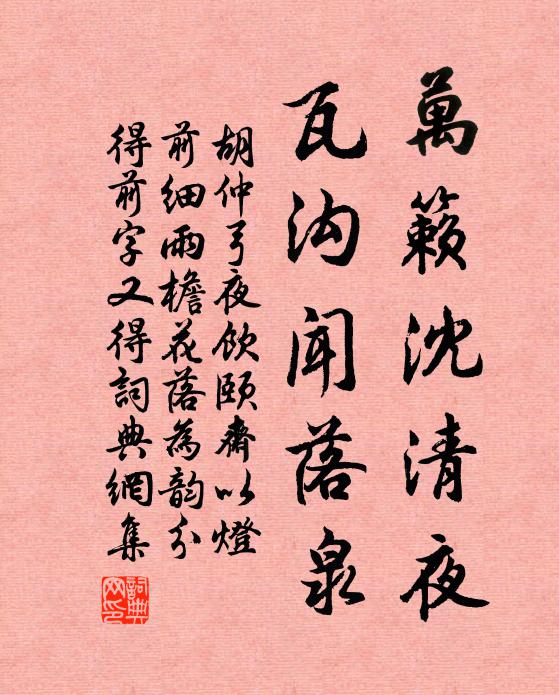 萬籟沈清夜
瓦沟聞落泉
胡仲弓夜飲頤齋以燈
前細雨檐花落為韵分
得前字又得詞典網集
詞典網印